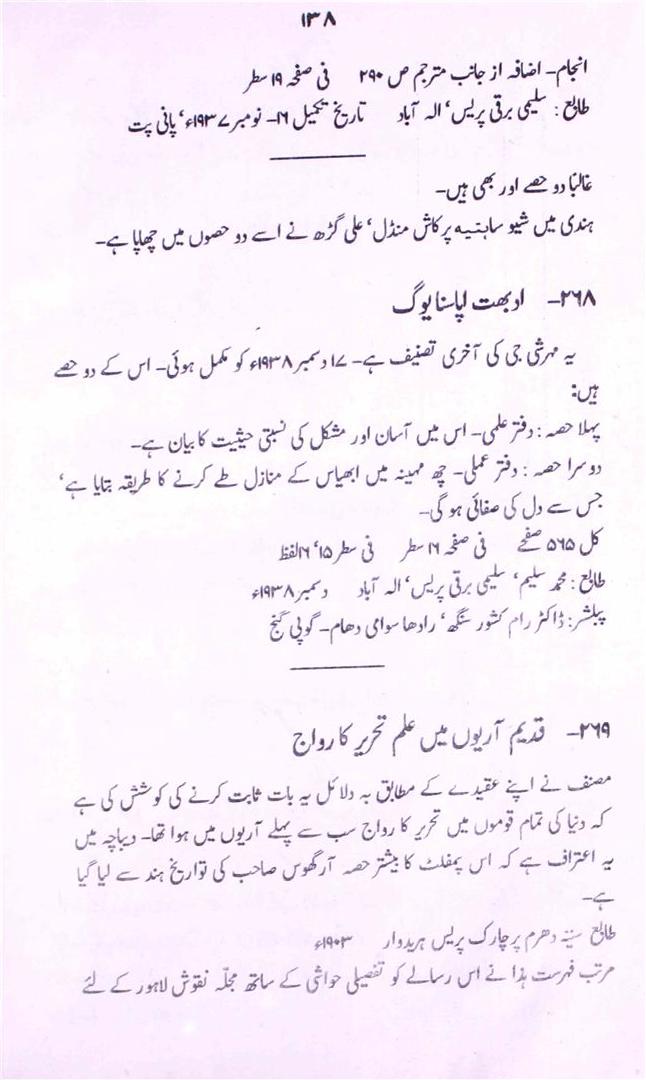 ۱۳۸
انجام۔ اضافہ از جانب مترجم ص ۲۹۰ فی صفحہ ۱۹ سطر
طابع : سلیمی برقی پریس، الہ آباد تاریخ تکمیل ۱۶۔ نومبر ۱۹۳۷ء، پانی پت
غالبًا دو حصے اور بھی ہیں۔
ہندی میں شیو ساہتیہ پرکاش منڈل، علی گڑھ نے اسے دو حصوں میں چھاپا ہے۔
۲۶۸۔ ادبھت اپاسنا یوگ
یہ مہرشی جی کی آخری تصنیف ہے۔ ۱۷ دسمبر ۱۹۳۸ء کو مکمل ہوئی۔ اس کے دو حصے
ہیں:
پہلا حصہ : دفتر علمی۔ اس میں آسان اور مشکل کی نسبتی حیثیت کا بیان ہے۔
دوسرا حصہ : دفتر عملی۔ چھ مہینہ میں ابھیاس کے منازل طے کرنے کا طریقہ بتایا ہے،
جس سے دل کی صفائی ہو گی۔
کل ۵۶۵ صفحے فی صفحہ ۱۶ سطر فی سطر ۱۵، ۱۶ لفظ
طابع : محمد سلیم، سلیمی برقی پریس، الہ آباد دسمبر ۱۹۳۸ء
پبلشر : ڈاکٹر رام کشور سنگھ، رادھا سوامی دھام۔ گوپی گنج
۲۶۹۔ قدیم آریوں میں علم تحریر کا رواج
مصنف نے اپنے عقیدے کے مطابق بہ دلائل یہ بات ثابت کرنے کی کوشش کی ہے
کہ دنیا کی تمام قوموں میں تحریر کا رواج سب سے پہلے آریوں میں ہوا تھا۔ دیباچہ میں
یہ اعتراف ہے کہ اس پمفلٹ کا بیشتر حصہ آرگھوس صاحب کی تواریخ ہند سے لیا گیا
ہے۔
طابع ستیہ دھرم پرچارک پریس ہریدوار ۱۹۰۳ء
مرتب فہرست ہذا نے اس رسالے کو تفصیلی حواشی کے ساتھ مجلّہ نقوش لاہور کے لئے